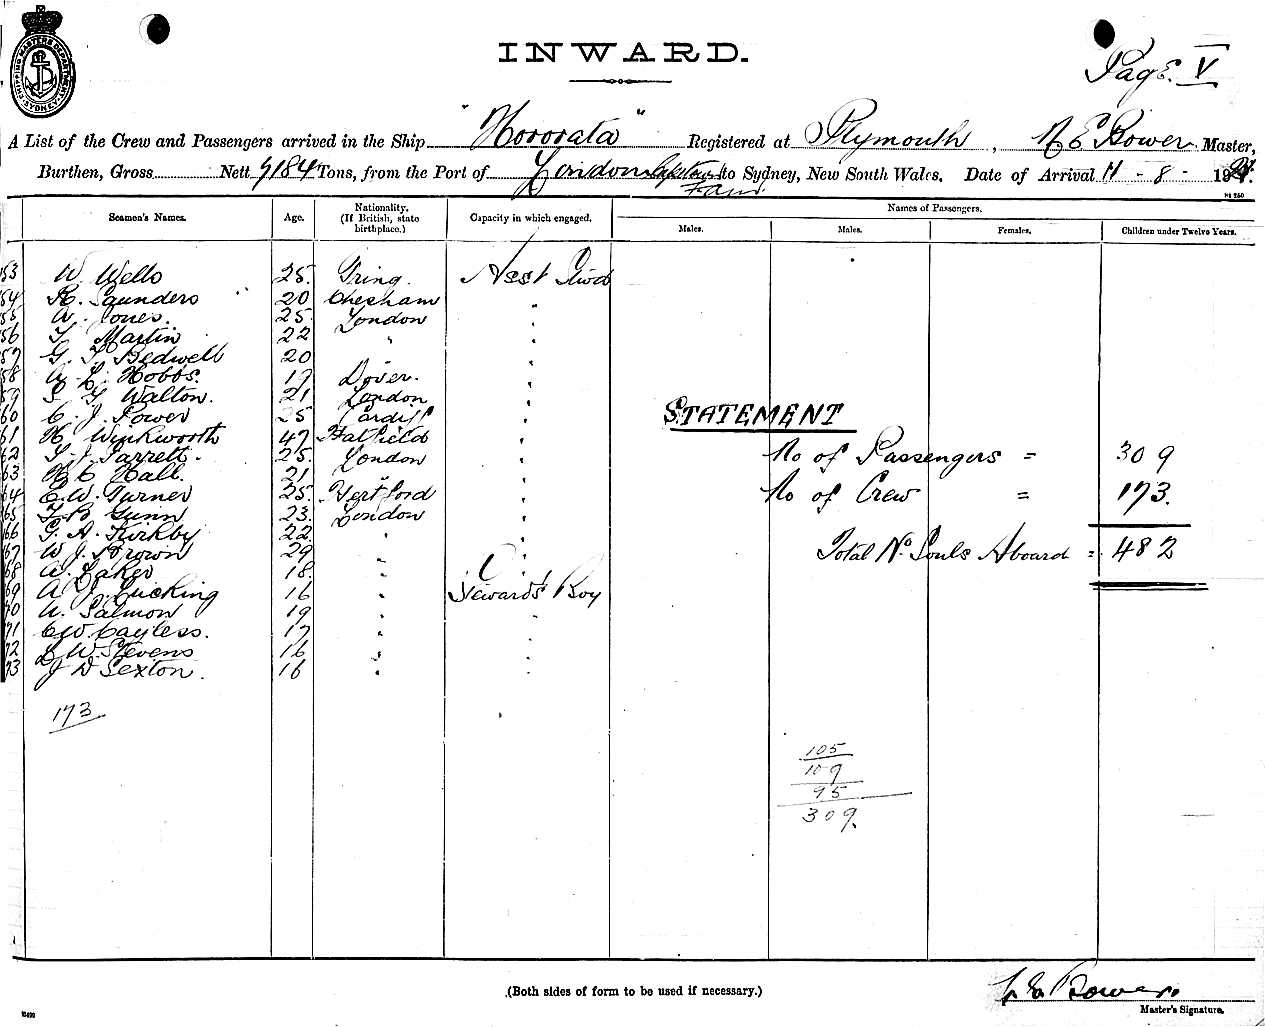 SHIPPING MASTERS DEPARTMENT SYDNEY
INWARD.
Page V
A List of the Crew and Passengers arrived in the Ship "Hororata" Registered at Plymouth, Bower Master,
Burthen, Gross Nett 9184 Tons, from the Port of London to Sydney, New South Wales. Date of Arrival 11 - 8 - 19
Seamen's Names. Age. Nationality. (If British, state birthplace.) Capacity in which engaged. Names of Passengers.
Males. Males. Females. Children under Twelve Years.
53 W Wells 25. Tring. Asst Stwd
54 H. Saunders 20 Chesham "
55 A. Jones. 25 London "
56 T. Martin 22 " "
57 G. T. Bedwell 20 "
58 Hobbs. 17 Dover. "
59 G Walton. 21 London "
60 C. J. Power 25 Cardiff "
61 H. Winkworth 47 Hatfield "
62 J. Jarrett. 25. London "
63 H C Hall. 21 " "
64 C. W. Turner 25. Hertford "
65 Gunn 23. London "
66 G. A. Kirkby 22. " "
67 W. J. Brown 29 " "
68 A. Laker 18. " "
69 A J. Lucking 16 " Stewards Boy
70 A. Salmon 19 " "
71 C W Cayless. 17 " "
72 W. Stevens 16 " "
73 J D Sexton. 16 " "
173
STATEMENT
No of Passengers = 309
No of Crew = 173.
Total No. Souls Aboard = 482
105
109
95
309
(Both sides of form to be used if necessary.)
Bower.
Master's Signature.